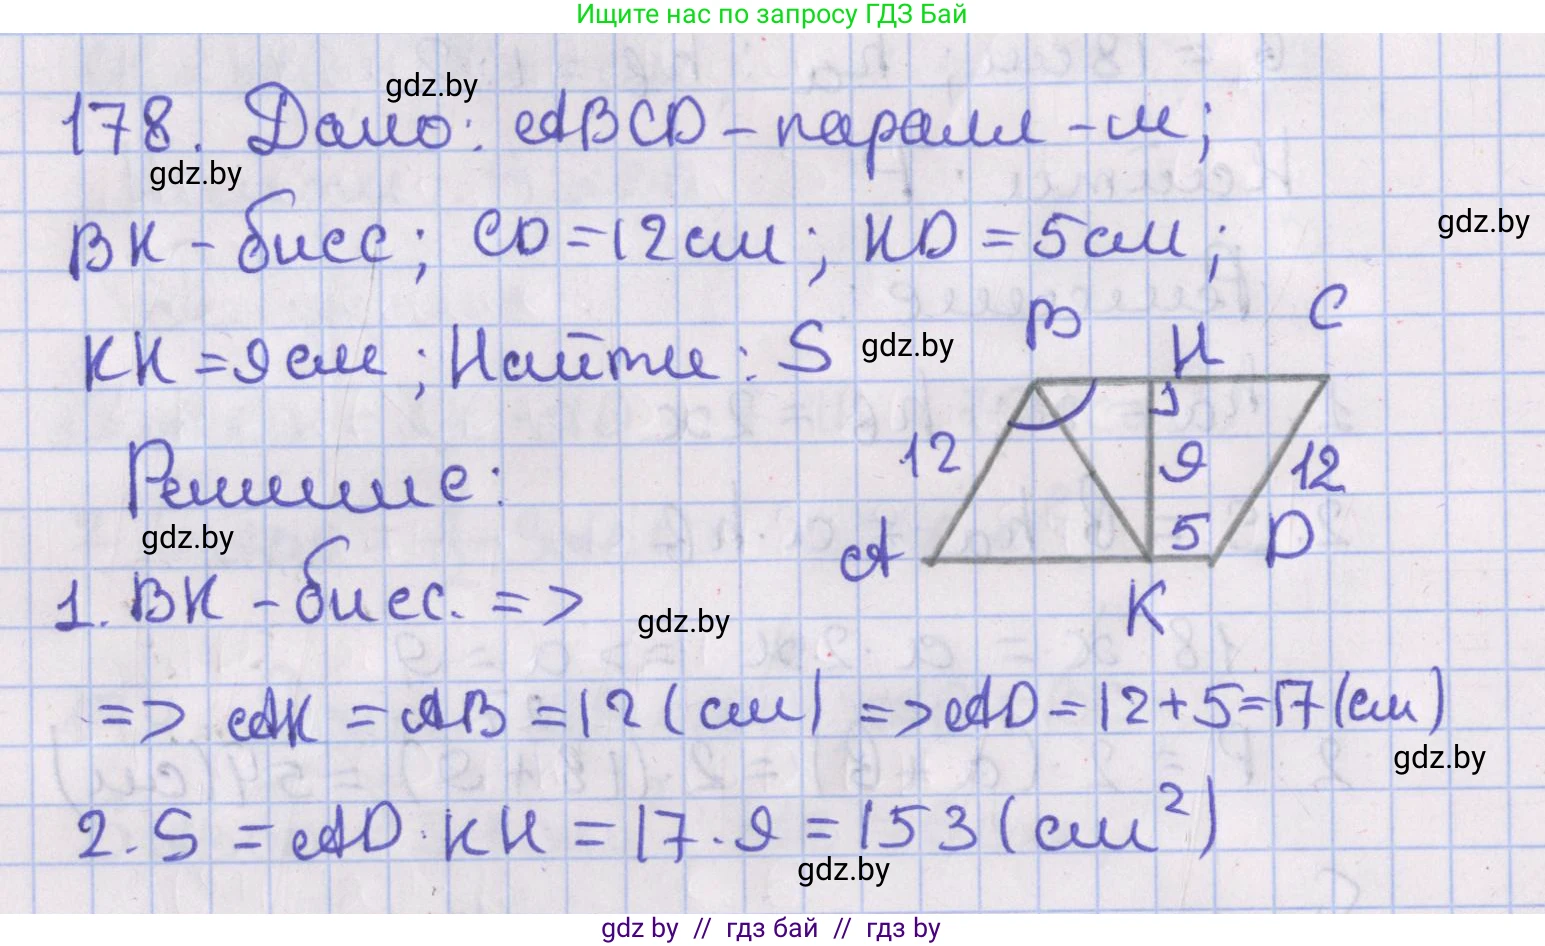 Ищите нас по запросу ГДЗ Бай
gdz.by
178. Дано: ABCD - паралл - м;
gdz.by
BK - бисс; CD = 12 см; KD = 5 см;
gdz.by
KH = 9 см; Найти: S
gdz.by
B H C
12 9 12
5
A K D
Решение:
gdz.by
1. BK - бисс. =>
gdz.by
=> AK = AB = 12 (см) => AD = 12 + 5 = 17 (см)
gdz.by
2. S = AD · KH = 17 · 9 = 153 (см²)
gdz.by
gdz by // гдз бай // гдз by